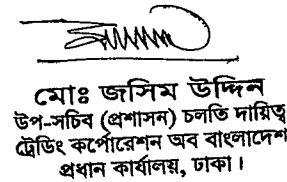 মোঃ জসিম উদ্দিন
উপ-সচিব (প্রশাসন) চলতি দায়িত্ব
ট্রেডিং কর্পোরেশন অব বাংলাদেশ
প্রধান কার্যালয়, ঢাকা।